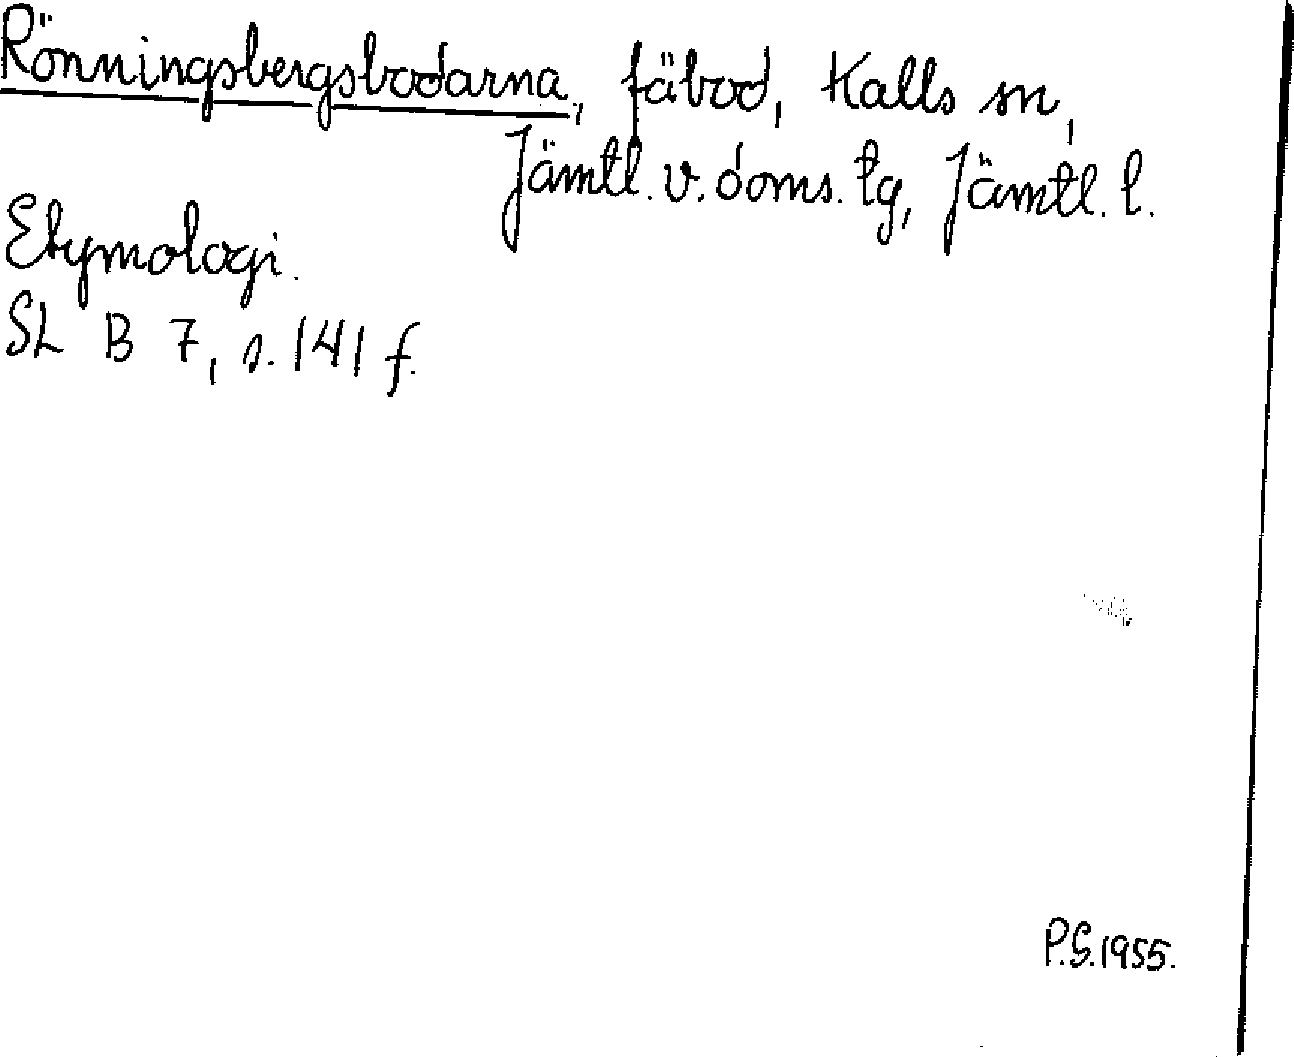 Rönningsbergsbodarna, fäbod, Kalls sn,
Jämtl. v. doms. tg, Jämtl. l.
Etymologi.
SL B 7, s. 141 f.
P.S. 1955.